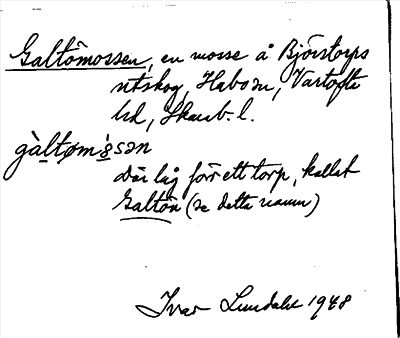 Galtömossen, en mosse å Björstorps
utskog, Habo sn, Vartofta
hd, Skarab. l.
gàltømɔ̀sən
där låg förr ett torp, kallat
Galtön (se detta namn)
Ivar Lundahl 1948